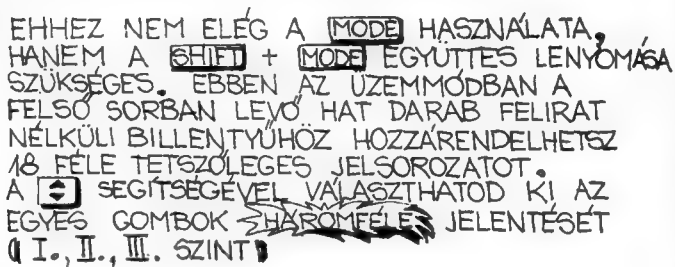 EHHEZ NEM ELÉG A MODE HASZNÁLATA,
HANEM A SHIFT + MODE EGYÜTTES LENYOMÁSA
SZÜKSÉGES. EBBEN AZ ÜZEMMÓDBAN A
FELSŐ SORBAN LEVŐ HAT DARAB FELIRAT
NÉLKÜLI BILLENTYŰHÖZ HOZZÁRENDELHETSZ
18 FÉLE TETSZŐLEGES JELSOROZATOT.
A SEGÍTSÉGÉVEL VÁLASZTHATOD KI AZ
EGYES GOMBOK HÁROMFÉLE JELENTÉSÉT
( I., II., III. SZINT )